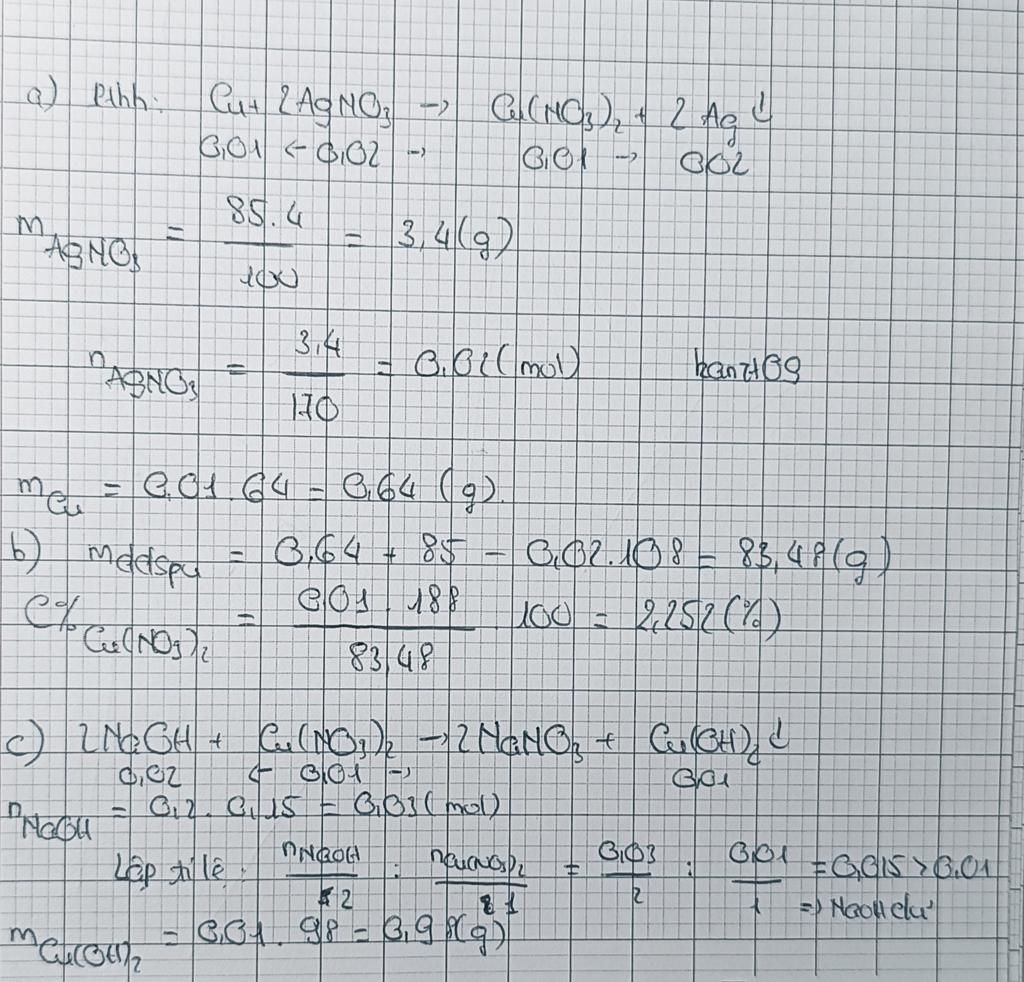 a) Pthh: Cu + 2AgNO₃ → Cu(NO₃)₂ + 2Ag↓
0,01 ← 0,02 → 0,01 → 0,02
m AgNO₃ = 85.4 / 100 = 3,4 (g)
n AgNO₃ = 3,4 / 170 = 0,02 (mol)
m Cu = 0,01.64 = 0,64 (g)
b) mddspu = 0,64 + 85 - 0,02.108 = 83,48 (g)
C% Cu(NO₃)₂ = 0,01.188 / 83,48 . 100 = 2,252 (%)
c) 2NaOH + Cu(NO₃)₂ → 2NaNO₃ + Cu(OH)₂↓
0,02 ← 0,01 → 0,01
n NaOH = 0,2.0,15 = 0,03 (mol)
Lập tỉ lệ: nNaOH / 2 : nCu(NO₃)₂ / 1 = 0,03 / 2 : 0,01 / 1 = 0,015 > 0,01
=> NaOH dư
m Cu(OH)₂ = 0,01.98 = 0,98 (g)